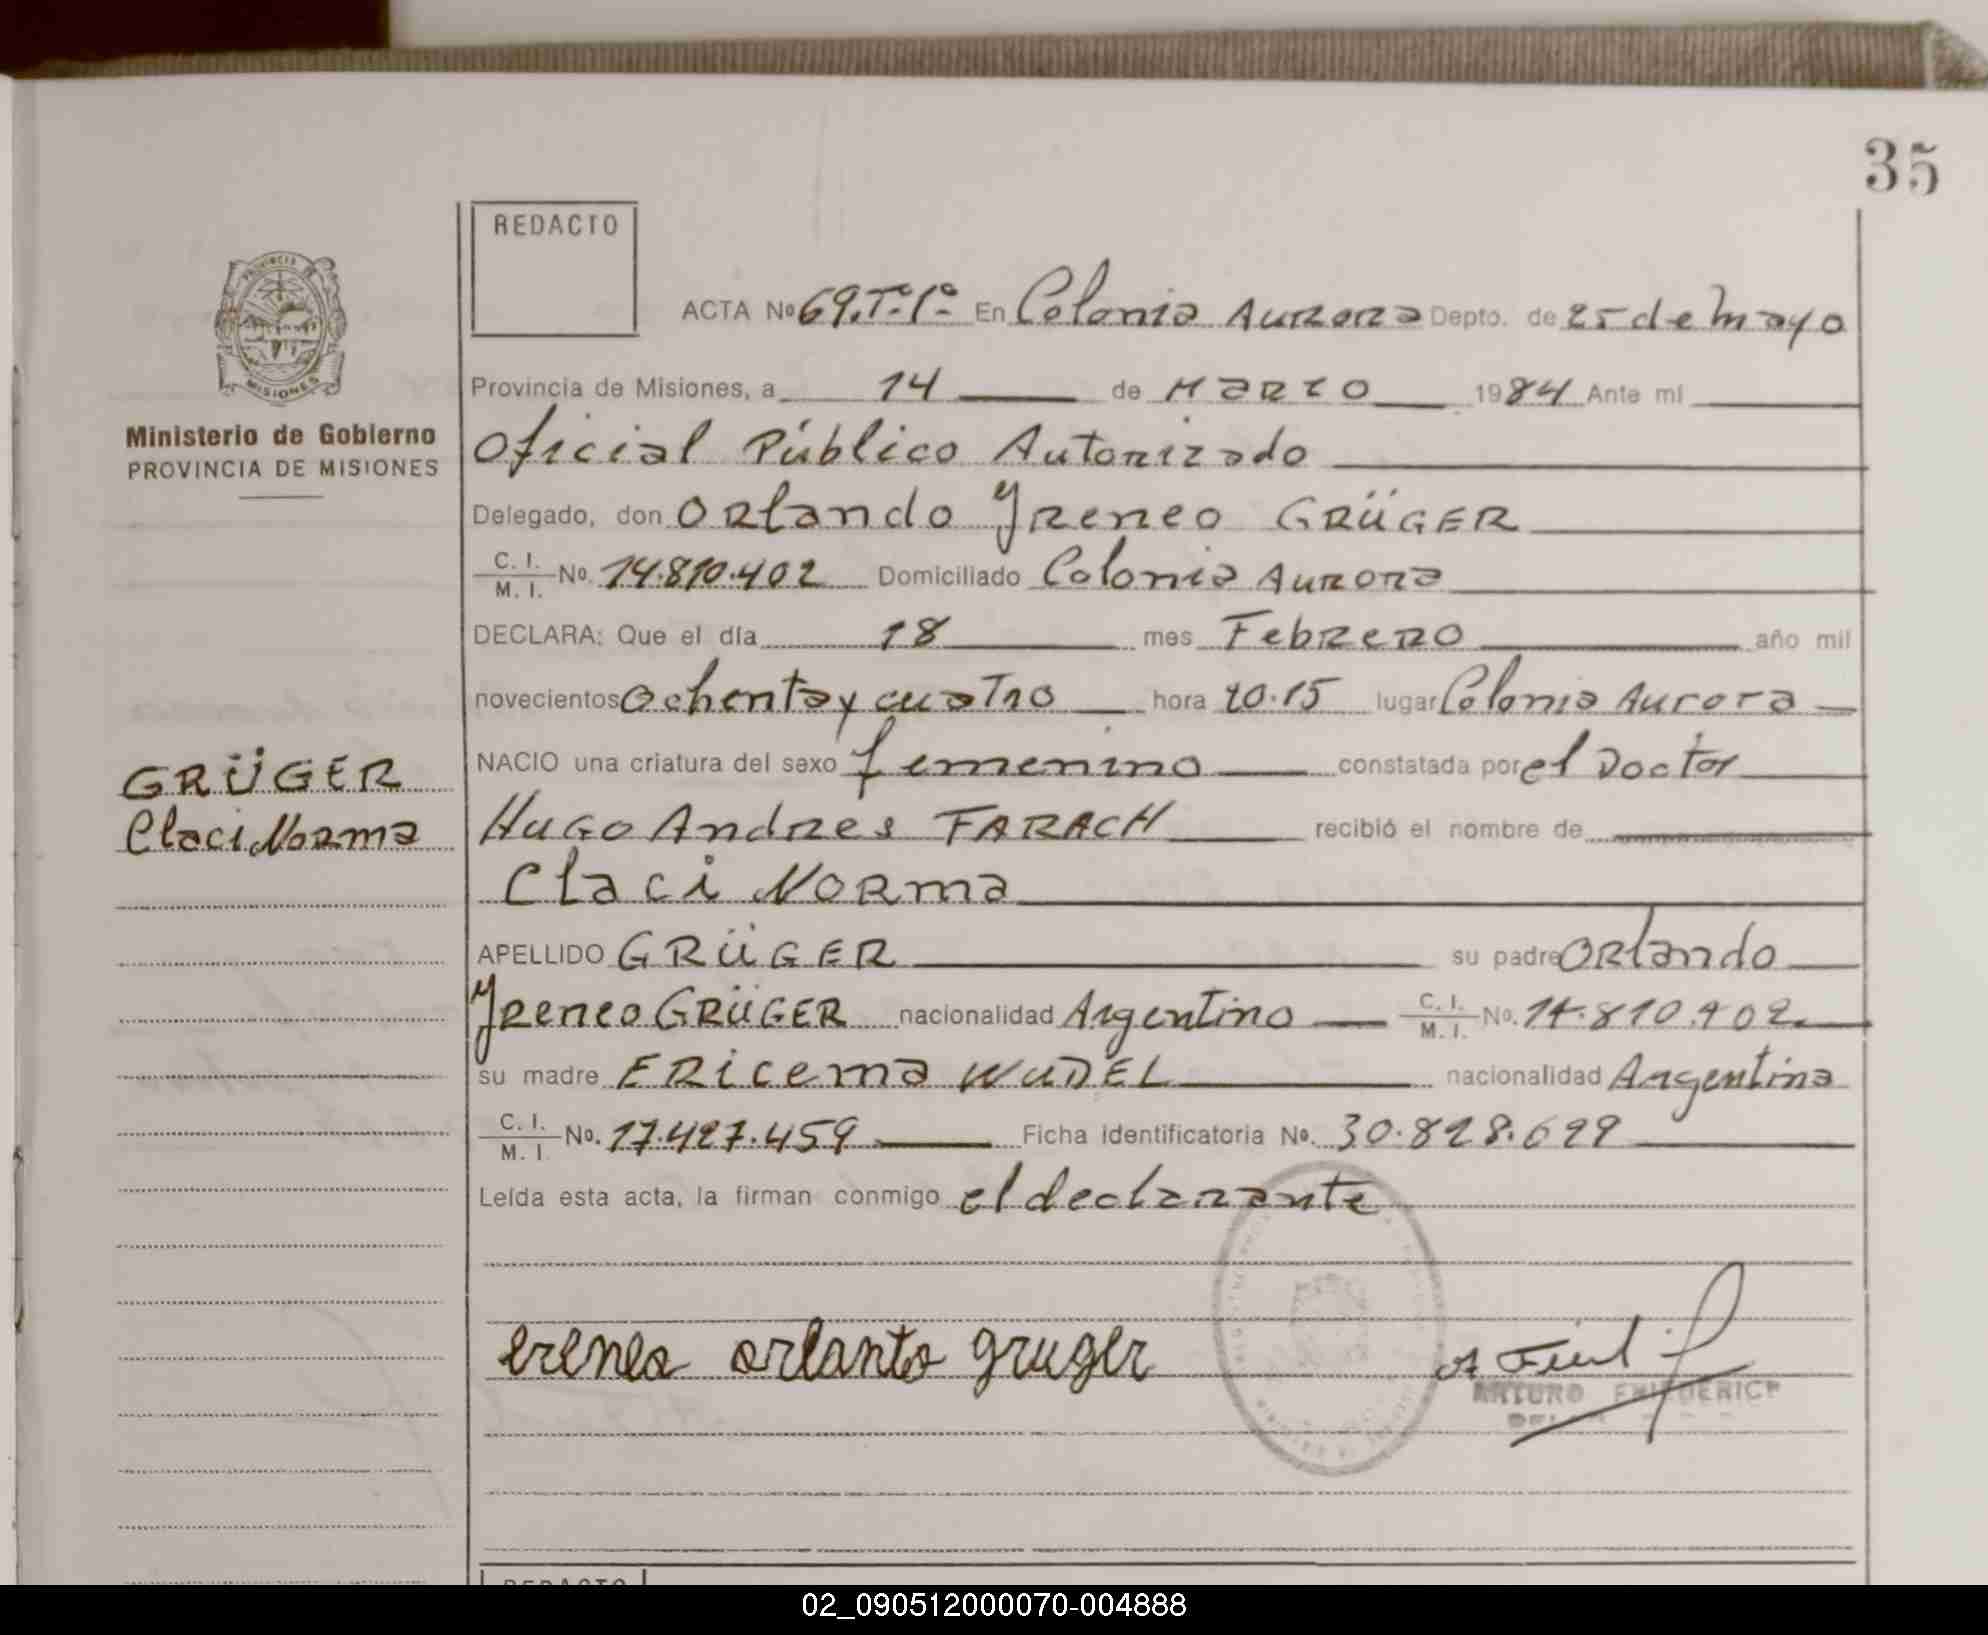 35
REDACTO
PROVINCIA DE
MISIONES
ACTA Nº 69.Tº.1º. En Colonia Aurora Depto. de 25 de mayo
Provincia de Misiones, a 14 de Marzo 1984 Ante mí
Ministerio de Gobierno
PROVINCIA DE MISIONES
Oficial Público Autorizado
Delegado, don Orlando Yreneo GRÜGER
C. I. M. I. No. 14.810.402 Domiciliado Colonia Aurora
DECLARA: Que el día 18 mes Febrero año mil
novecientos Ochenta y cuatro hora 20.15 lugar Colonia Aurora
NACIO una criatura del sexo femenino constatada por el Doctor
GRÜGER
Claci Norma
Hugo Andres FARACH recibió el nombre de
Claci Norma
APELLIDO GRÜGER su padre Orlando
Yreneo GRÜGER nacionalidad Argentino C. I. M. I. No. 14.810.402
su madre ERicema WUDEL nacionalidad Argentina
C. I. M. I No. 17.427.459 Ficha identificatoria Nº. 30.828.699
Leída esta acta, la firman conmigo el declarante
erenea orlanto gruger
ARTURO
REDACTO
02_090512000070-004888